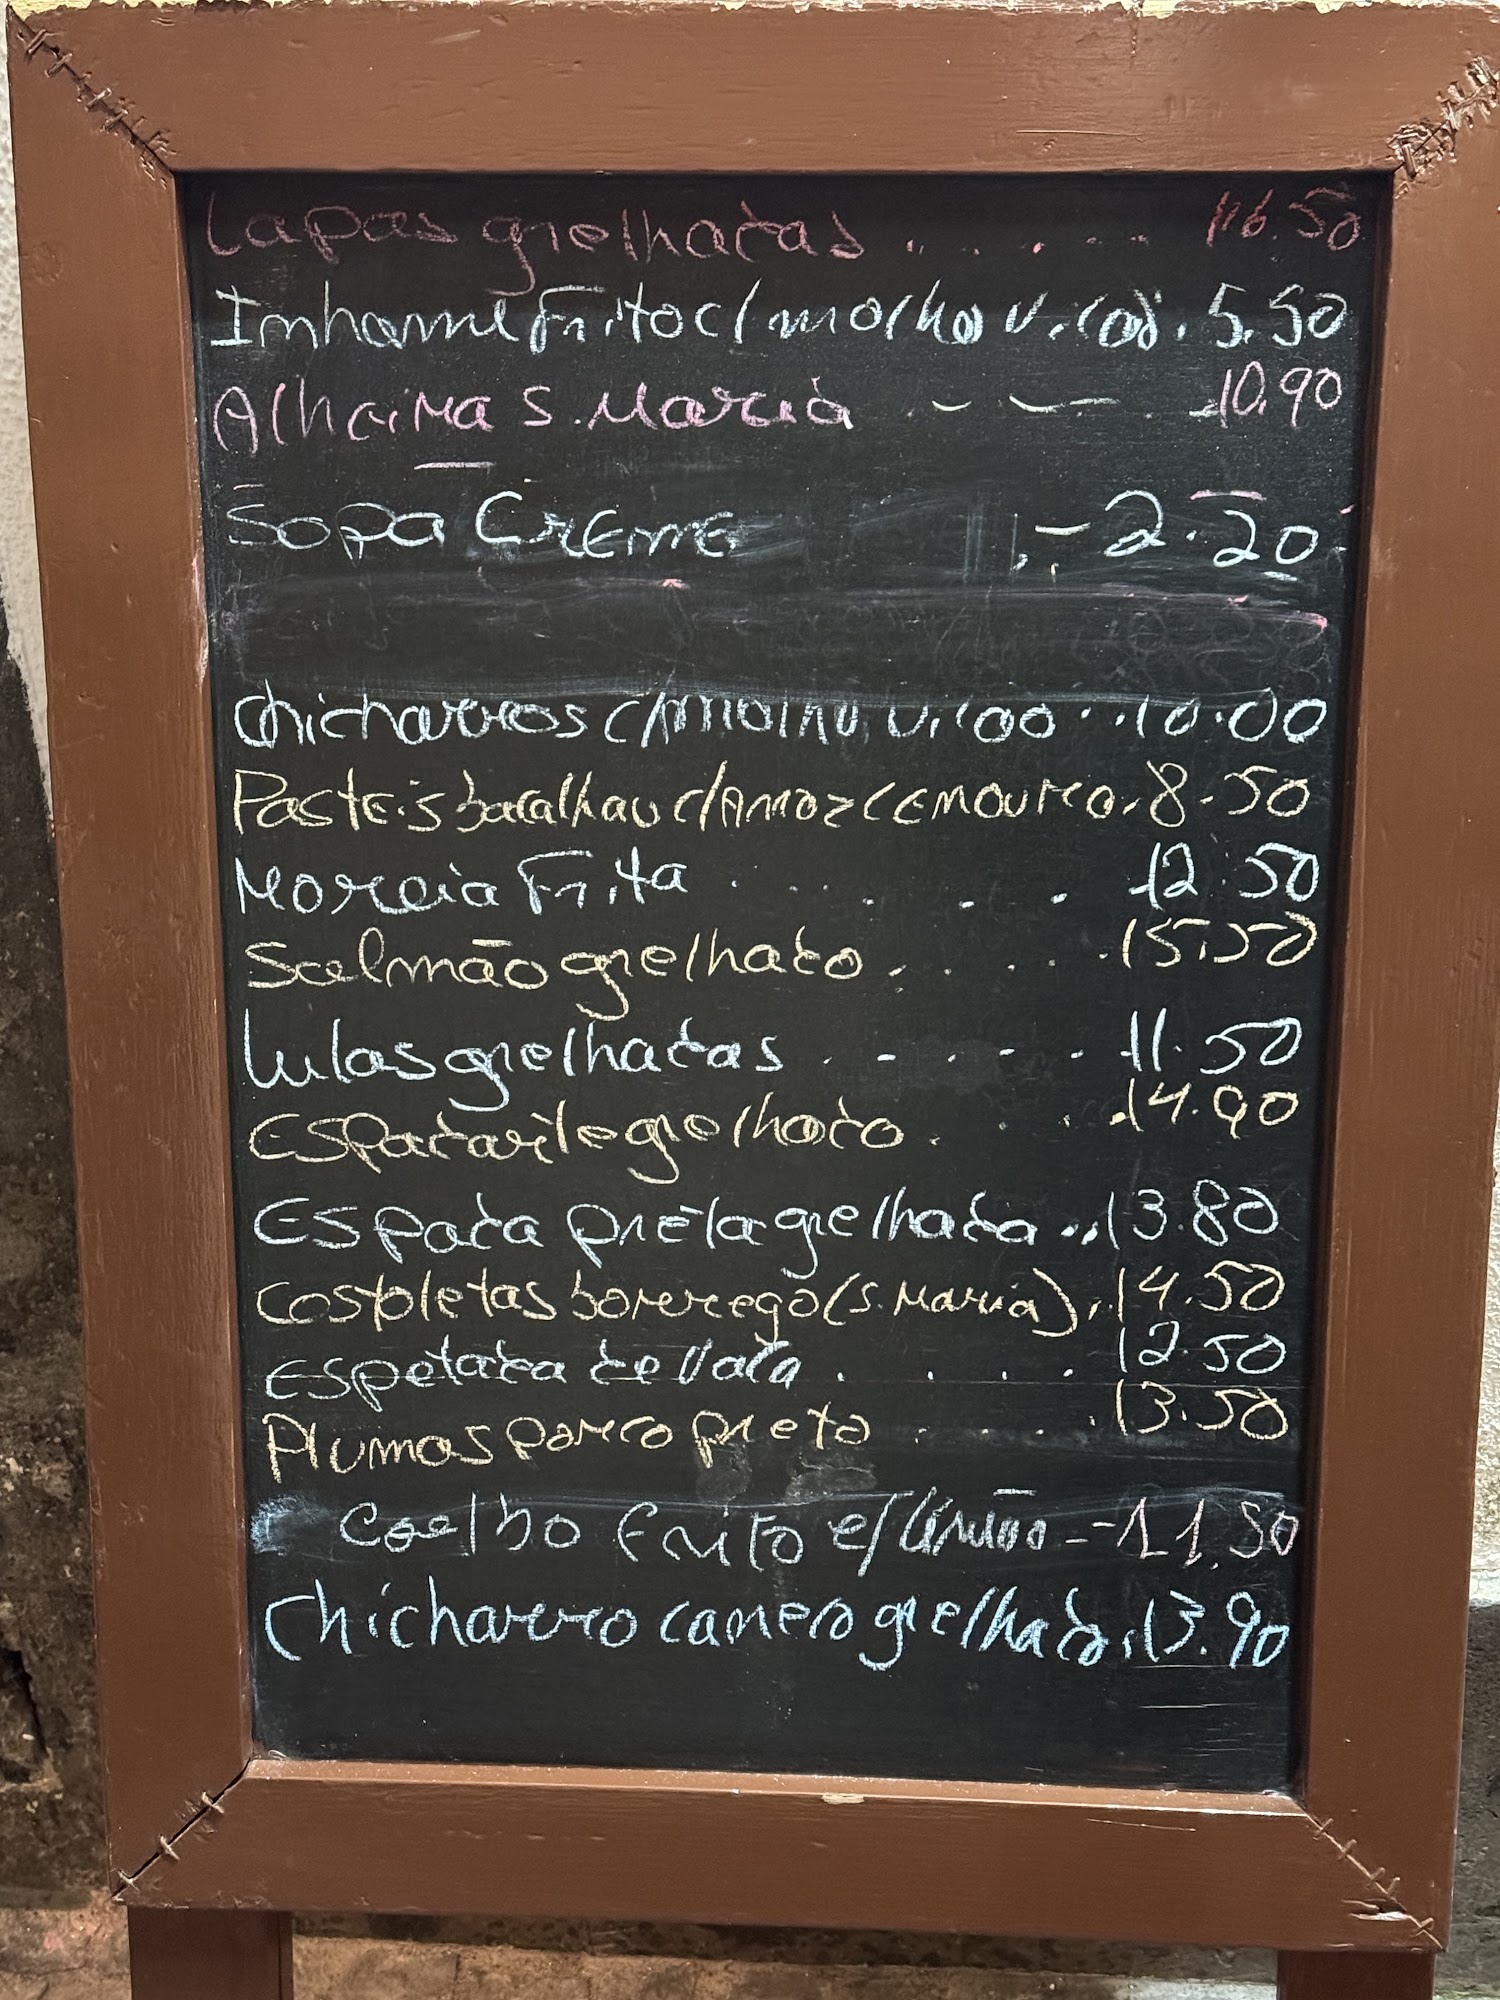 Lapas grelhadas . . . . . 16.50
Inhame Frito c/molho vilão. 5.50
Alheira S. Maria . - - - . 10.90
Sopa Creme . - 2.20
Chicharros c/molho vilão . . 10.00
Pasteis bacalhau c/Arroz cenoura. 8.50
Moreia Frita . . . . . 12.50
Salmão grelhado . . . . . 15.50
Lulas grelhadas . - . - . 11.50
Espadarte grelhado . . . . 14.90
Espada preta grelhada . . 13.80
Costoletas borrego (S. Maria) . 14.50
Espetada de Vaca . . . . 12.50
Plumas porco preto . . . . 13.50
Coelho frito c/limão - - 11.50
Chicharro canero grelhado . 13.90